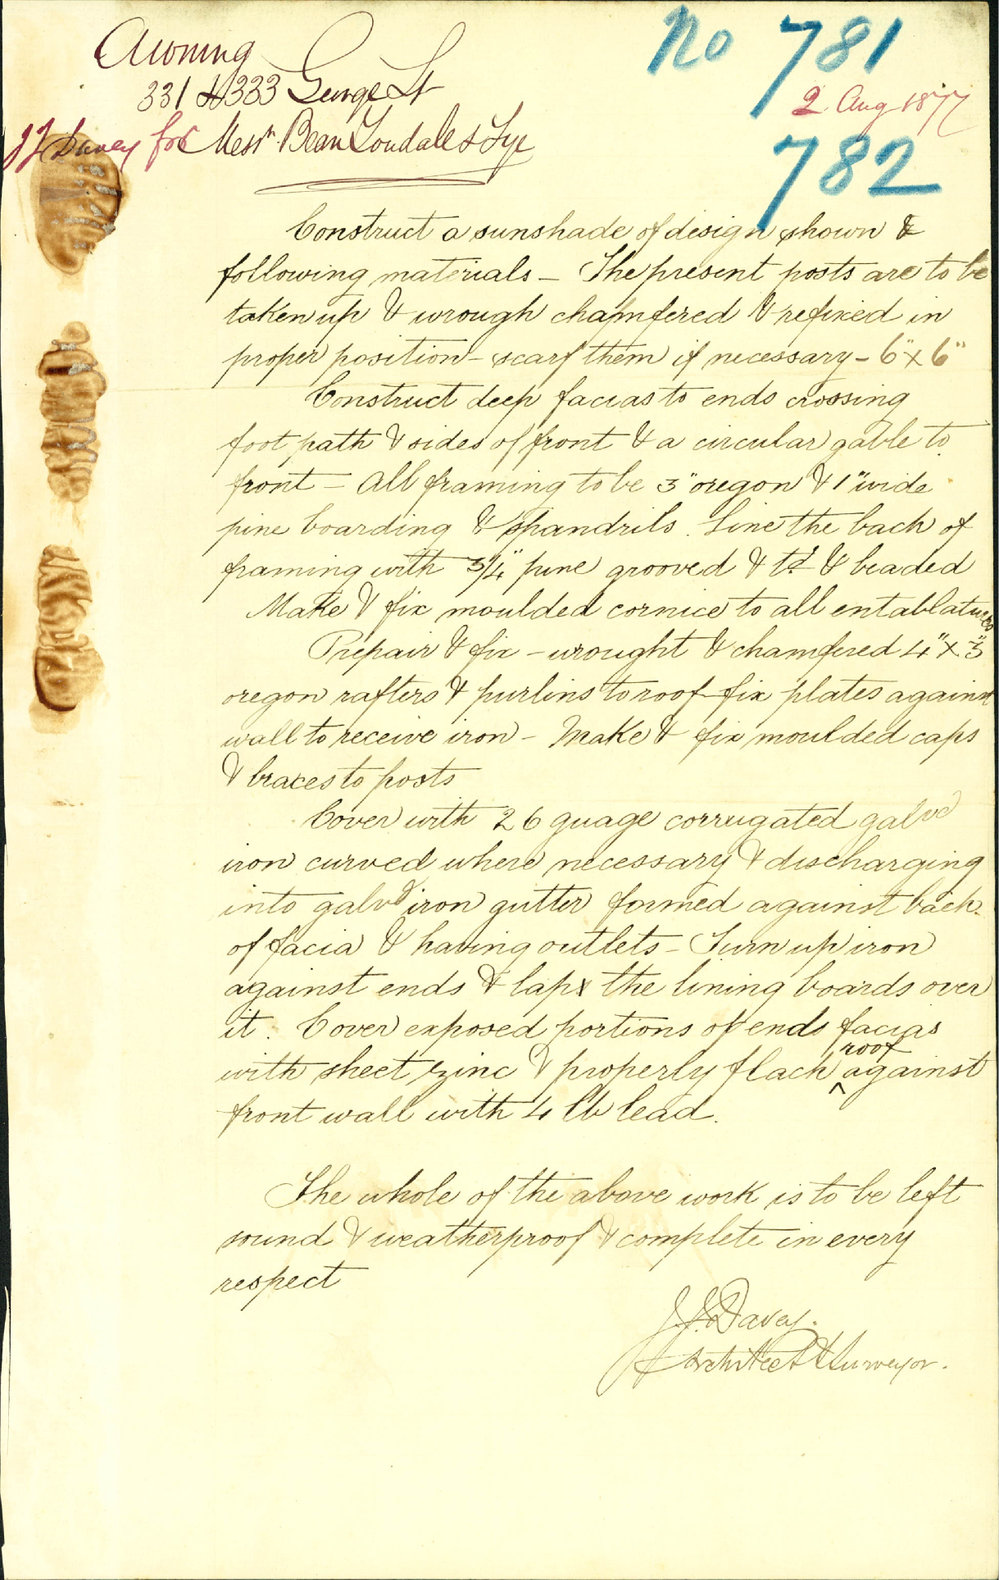 Awning
331 & 333 George St
J J Davey for Messrs Bean Londale & Tye
No 781
2 Aug 1877
782
Construct a sunshade of design shown &
following materials – The present posts are to be
taken up & wrough chamfered & refixed in
proper position – scarf them if necessary – 6" x 6"
Construct deep facias to ends crossing
foot path & sides of front & a circular gable to
front – All framing to be 3" oregon & 1" wide
pine boarding & spandrils. Line the back of
framing with 3/4" pine grooved & td & beaded
Make & fix moulded cornice to all entablatures
Prepair & fix – wrought & chamfered 4" x 3"
oregon rafters & purlins to roof fix plates against
wall to receive iron – Make & fix moulded caps
& braces to posts
Cover with 26 guage corrugated galvd
iron curved where necessary & discharging
into galvd iron gutter formed against back
of facia & having outlets – Turn up iron
against ends & lap the lining boards over
it. Cover exposed portions of ends facias
with sheet zinc & properly flach roof against
front wall with 4 lb lead.
The whole of the above work is to be left
sound & weatherproof & complete in every
respect
J. J. Davey.
Architect & Surveyor.